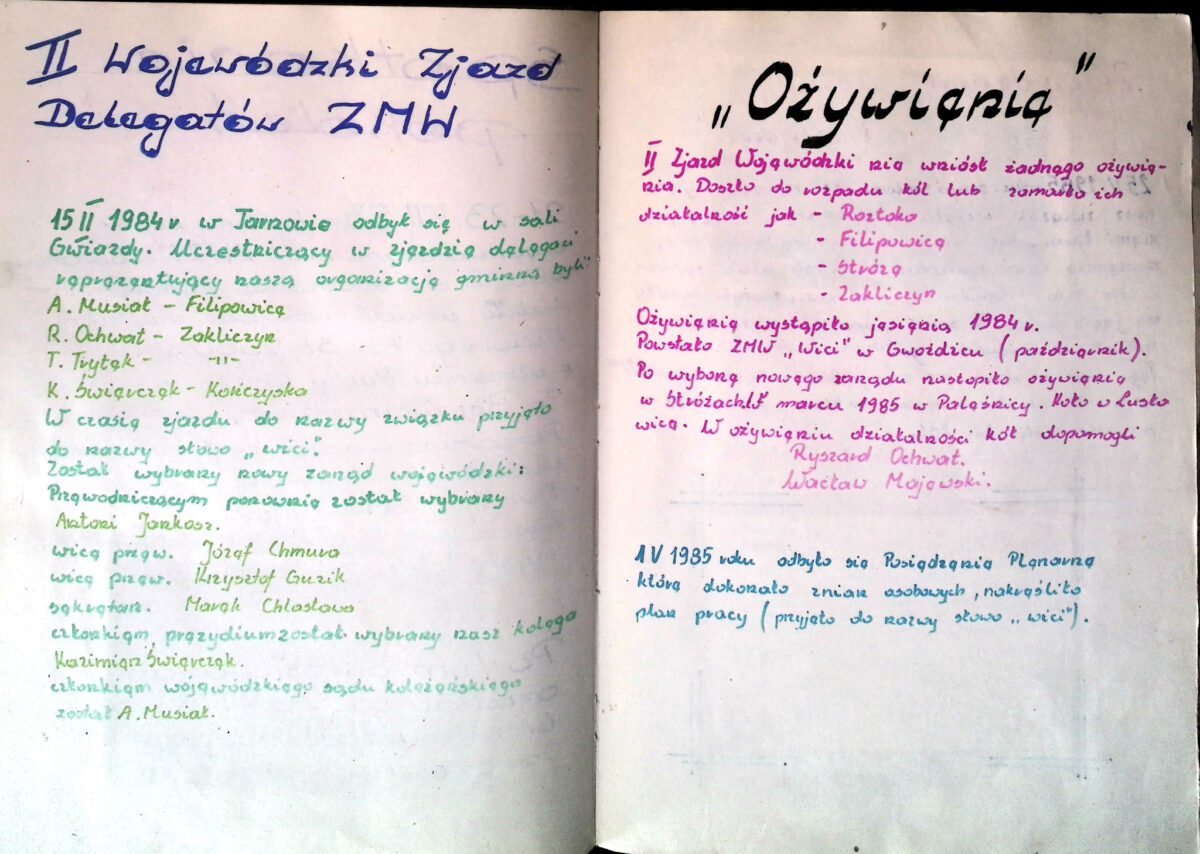 II Wojewódzki Zjazd
Delegatów ZMW
15 II 1984 r w Tarnowie odbył się w sali
Gwiazdy. Uczestniczący w zjeździe delegaci
reprezentujący naszą organizację gminną byli:
A. Musiał - Filipowice
R. Ochwat - Zakliczyn
T. Trytek - -"-
K. Świerczek - Kończyska
W czasie zjazdu do nazwy związku przyjęto
do nazwy słowo „wici".
Został wybrany nowy zarząd wojewódzki:
Przewodniczącym ponownie został wybrany
Antoni Jankosz.
wice przew. Józef Chmura
wice przew. Krzysztof Guzik
sekretarz. Marek Chlastawa
członkiem prezydium został wybrany nasz kolega
Kazimierz Świerczek.
członkiem wojewódzkiego sądu koleżeńskiego
został A. Musiał.
„Ożywienie"
II Zjazd Wojewódzki nie wniósł żadnego ożywie-
nia. Doszło do rozpadu kół lub zamarła ich
działalność jak - Roztoka
- Filipowice
- Stróże
- Zakliczyn
Ożywienie wystąpiło jesienią 1984 r.
Powstało ZMW „Wici" w Gwoźdźcu (październik).
Po wyborze nowego zarządu nastąpiło ożywienie
w Stróżach. W marcu 1985 w Paleśnicy. Koło w Lusło
wicę. W ożywieniu działalności kół dopomogli
Ryszard Ochwat.
Wacław Majewski.
1 V 1985 roku odbyło się Posiedzenie Plenarne
które dokonało zmian osobowych, nakreśliło
plan pracy (przyjęto do nazwy słowo „wici").